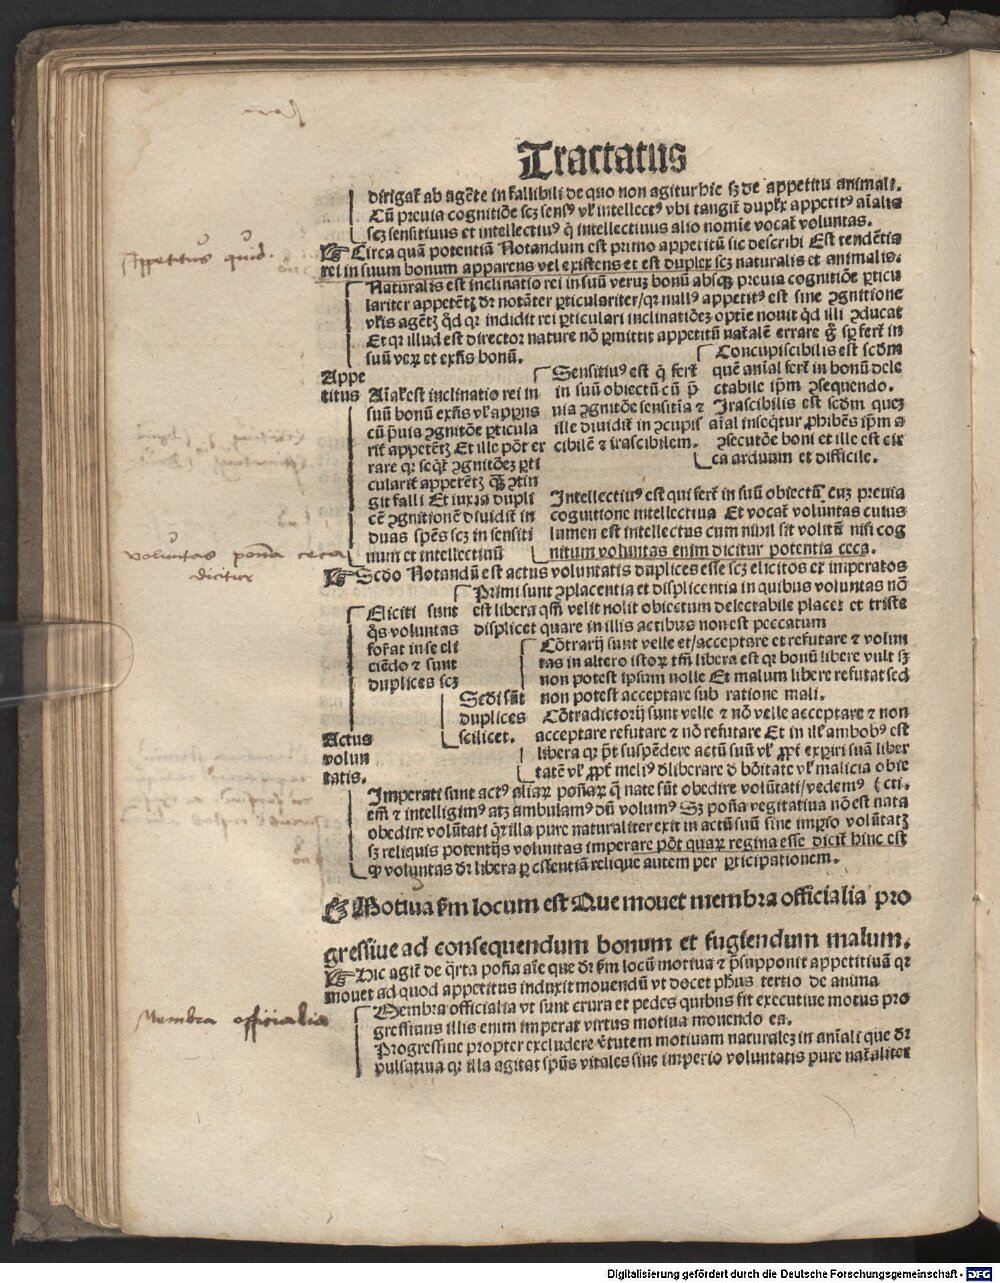 Tractatus
dirigat᷑ ab agēte in fallibili de quo non agitur hic sꝫ de appetitu animali.
Cū preuia cognitiōe scꝫ sensꝰ vl̕ intellectꝰ vbi tangit᷑ duplex appetitꝰ aīalis
scꝫ sensitiuus et intellectiuꝰ q̇ intellectiuus alio nomīe vocat᷑ voluntas.
Circa quā potentiā Notandum est primo appetitū sic describi Est tendētia
rei in suum bonum apparens vel existens et est duplex scꝫ naturalis et animalis.
Appetitus quid.
Naturalis est inclinatio rei in suū veruꝫ bonū absqꝫ preuia cognitiōe ꝑticu
lariter appetētꝫ dr̄ notāter ꝑticulariter/qꝛ nullꝰ appetitꝰ est sine ꝯgnitione
vl̕is agētꝫ q̇d qꝛ indidit rei ꝑticulari inclinatiōeꝫ optīe nouit q̇d illi ꝯducat
Et qꝛ illud est director nature nō ꝑmittit appetitū nat᷑alē errare g̊ sꝑ fert᷑ in
suū veꝝ et exn̄s bonū.
Appe
titus
Aīal̕ est inclinatio rei in
suū bonū exn̄s vl̕ apꝑns
cū p̄uia ꝯgnitōe ꝑticula
rit᷑ appetētꝫ Et ille pōt er
rare qꝛ seqt᷑ ꝯgnitōeꝫ ꝑti
cularit᷑ appetētꝫ quā ꝯtin
git falli Et iuxta dupli
cē ꝯgnitionē diuidit᷑ in
duas sp̄es scꝫ in sensiti
uum et intellectiuū
Sensitiuꝰ est q̇ fert᷑
in suū obiectū cū p̄
uia ꝯgnitōe sensitīa ⁊
ille diuidit᷑ in ꝯcupis
cibilē ⁊ irascibilem.
Concupiscibilis est scd̄m
quē anīal fert᷑ in bonū dele
ctabile ip̄m ꝯsequendo.
Irascibilis est scd̄m queꝫ
aīal inseq̇tur ꝓhibēs ip̄m a
ꝯsecutōe boni et ille est cir
ca arduum et difficile.
Intellectiuꝰ est qui fert᷑ in suū obiectū cuꝫ preuia
cognitione intellectiua Et vocat᷑ voluntas cuius
lumen est intellectus cum nihil sit volitū nisi cog
nitum voluntas enim dicitur potentia ceca.
voluntas pon̄a ceca
dicitur
Scd̄o Notandū est actus voluntatis duplices esse scꝫ elicitos et imperatos
Actus
volun
tatis.
Eliciti sunt
q̇s voluntas
for̄at in se eli
ciēdo ⁊ sunt
duplices scꝫ
Primi sunt ꝯplacentia et displicentia in quibus voluntas nō
est libera qm̄ velit nolit obiectum delectabile placet et triste
displicet quare in illis actibus non est peccatum
Scd̄i sūt
duplices
scilicet.
Cōtrarij sunt velle et/acceptare et refutare ⁊ volun
tas in altero istoꝝ tm̄ libera est qꝛ bonū libere vult sꝫ
non potest ipsum nolle Et malum libere refutat sed
non potest acceptare sub ratione mali.
Cōtradictorij sunt velle ⁊ nō velle acceptare ⁊ non
acceptare refutare ⁊ nō refutare Et in ill̕ ambobꝰ est
libera qꝛ p̄t suspēdere actū suū vl̕ ꝓpt᷑ expiri suā liber
tatē vl̕ ꝓpt᷑ meliꝰ dliberare d bōitate vl̕ malicia obie
Imperati sunt actꝰ aliaꝝ pon̄aꝝ q̄ nate sūt obedire volūtati/vedemꝰ (cti.
em̄ ⁊ intelligimꝰ atꝫ ambulamꝰ dū volumꝰ Sꝫ pon̄a vegitatiua nō est nata
obedire volūtati q̇ꝛ illa pure naturaliter exit in actū suū sine imꝑio volūtatꝫ
sꝫ reliquis potentijs voluntas imperare pōt quaꝝ regina esse dicit᷑ hinc est
ꝙ voluntas dr̄ libera ꝑ essentiā relique autem per ꝑticipationem.
Motiua km̄ locum est Que mouet membra officialia pro
gressiue ad consequendum bonum et fugiendum malum.
Hic agit᷑ de q̇rta pon̄a aīe que dr̄ km̄ locū motiua ⁊ p̄supponit appetitiuā qꝛ
mouet ad quod appetitus induxit mouendū vt docet ph̄us tertio de anima
Membra officialia
Membra officialia vt sunt crura et pedes quibus fit executiue motus pro
gressiuus illis enim imperat virtus motiua mouendo ea.
Progressiue propter excludere v̄tutem motiuam naturaleꝫ in anīali que dr̄
pulsatiua qꝛ illa agitat sp̄us vitales sine imperio voluntatis pure nat᷑aliter
Digitalisierung gefördert durch die Deutsche Forschungsgemeinschaft - DFG